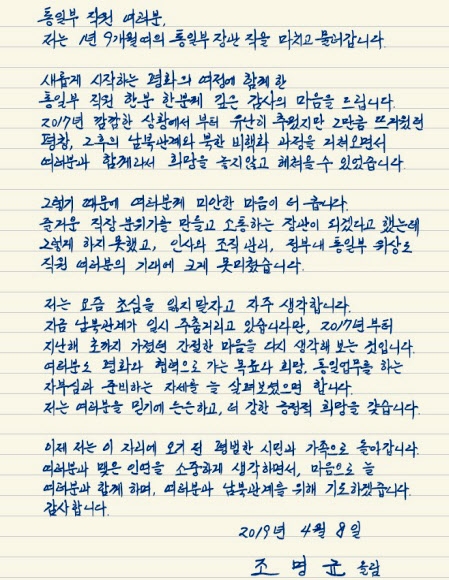 통일부 직원 여러분,
저는 1년 9개월여의 통일부 장관 직을 마치고 물러갑니다.
새롭게 시작하는 평화의 여정에 함께 한
통일부 직원 한분 한분께 깊은 감사의 마음을 드립니다.
2017년 깜깜한 상황에서 부터 유난히 추웠지만 그만큼 뜨거웠던
평창, 그후의 남북관계와 북한 비핵화 과정을 거쳐오면서
여러분과 함께라서 희망을 놓지않고 헤쳐올 수 있었습니다.
그렇기 때문에 여러분께 미안한 마음이 더 큽니다.
즐거운 직장 분위기를 만들고 소통하는 장관이 되겠다고 했는데
그렇게 하지 못했고, 인사와 조직 관리, 정부내 통일부 위상도
직원 여러분의 기대에 크게 못미쳤습니다.
저는 요즘 초심을 잃지 말자고 자주 생각합니다.
지금 남북관계가 잠시 주춤거리고 있습니다만, 2017년부터
지난해 초까지 가졌던 간절한 마음을 다시 생각해 보는 것입니다.
여러분도 평화와 협력으로 가는 목표와 희망, 통일업무를 하는
자부심과 준비하는 자세를 늘 살펴보셨으면 합니다.
저는 여러분을 믿기에 든든하고, 더 강한 긍정적 희망을 갖습니다.
이제 저는 이 자리에 오기 전 평범한 시민과 가족으로 돌아갑니다.
여러분과 맺은 인연을 소중하게 생각하면서, 마음으로 늘
여러분과 함께 하며, 여러분과 남북관계를 위해 기도하겠습니다.
감사합니다.
2019년 4월 8일
조명균 올림